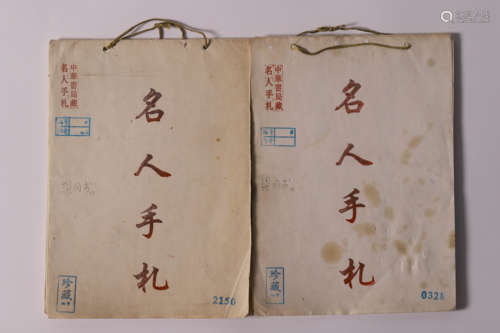 中華書局藏
名人手札
名人手札
珍藏
2156
中華書局藏
名人手札
名人手札
珍藏
0328